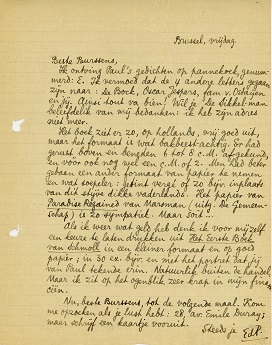 Brussel, vrijdag.
Beste Burssens,
Ik ontving Paul's gedichten op pannekoek, genum-
merd: E. Ik vermoed dat de 4 andere letters gegaan
zijn naar: De Bock, Oscar Jespers, fam. v. Ostayen
en jij. Ainsi tout va bien! Wil je De Sikkel-man
beleefdelijk van mij bedanken: ik heb zijn adres
niet meer.
Het boek ziet er zo, op hollands, vrij goed uit,
maar het formaat is wat bakbeestachtig. Er had
gerust boven en bengaan 6 tot 8 c.M. af gekund,
en vóór ook nog wel een c.M. of 2. Men had beter
gedaan een ander formaat van papier te nemen
en wat soepeler: getint vergé of zo bijv. inplaats
van dit stijve dikke vaderlands. Het papier van
Paradise Regained van Marsman (uitg. De Gemeen-
schap) is zo sympatiek. Maar soit.
Als ik weer wat geld heb denk ik voor mijzelf
een keuze te laten drukken uit Het Eerste Boek
van Schmoll in een kleiner formaat en op goed
papier; in 30 ex. bijv. en met het portret dat jij
van Paul tekende erin. Natuurlijk buiten de handel.
Maar ik zit op het ogenblik zeer krap in mijn finan-
ciën.
Nu, beste Burssens, tot de volgende maal. Kom
me opzoeken als je lust hebt: 28, av. Emile Duray;
maar schrijf een kaartje vooruit.
Steeds je EdP.